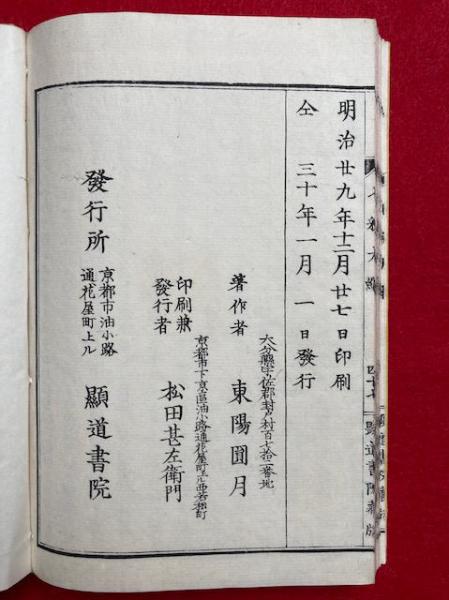 明治廿九年十二月廿七日印刷
仝 三十年一月一日發行
大分縣宇佐郡封戸村百七拾二番地
著作者 東陽圓月
京都市下京區油小路通花屋町上ル西若松町
印刷兼發行者 松田甚左衛門
發行所 京都市油小路通花屋町上ル 顯道書院
顯道書院藏版